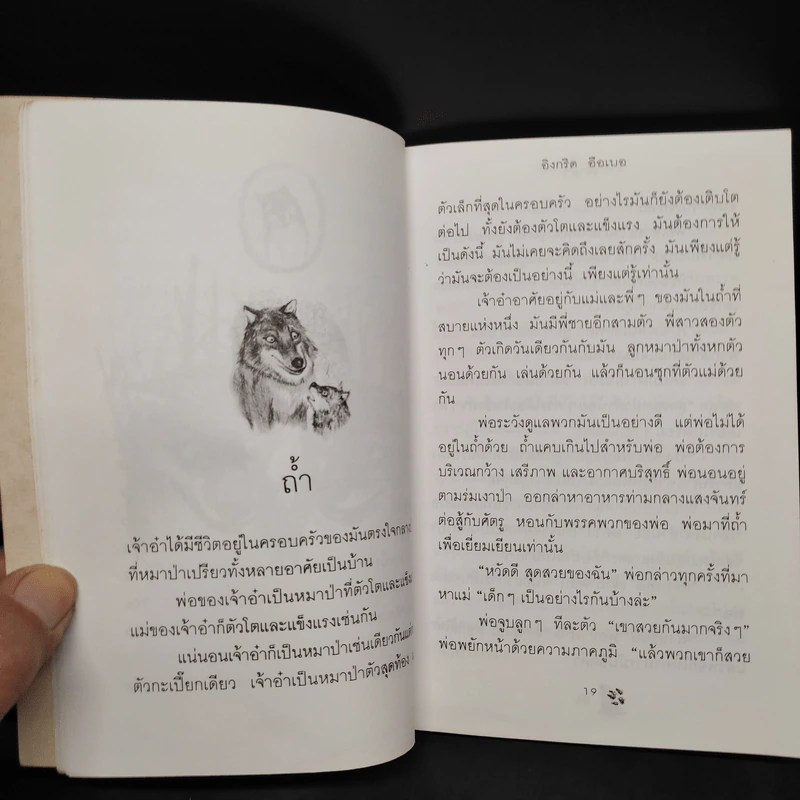 ถ้ำ
เจ้าอำได้มีชีวิตอยู่ในครอบครัวของมันตรงใจกลาง
ที่หมาป่าเปรียวทั้งหลายอาศัยเป็นบ้าน
พ่อของเจ้าอำเป็นหมาป่าที่ตัวโตและแข็ง
แม่ของเจ้าอำก็ตัวโตและแข็งแรงเช่นกัน
แน่นอนเจ้าอำก็เป็นหมาป่าเช่นเดียวกัน
ตัวกะเปี๊ยกเดียว เจ้าอำเป็นหมาป่าตัวสุดท้อง
อิงกริด อือเบอ
ตัวเล็กที่สุดในครอบครัว อย่างไรมันก็ยังต้องเติบโต
ต่อไป ทั้งยังต้องตัวโตและแข็งแรง มันต้องการให้
เป็นดังนี้ มันไม่เคยจะคิดถึงเลยสักครั้ง มันเพียงแต่รู้
ว่ามันจะต้องเป็นอย่างนี้ เพียงแต่รู้เท่านั้น
เจ้าอำอาศัยอยู่กับแม่และพี่ๆ ของมันในถ้ำที่
สบายแห่งหนึ่ง มันมีพี่ชายอีกสามตัว พี่สาวสองตัว
ทุกๆ ตัวเกิดวันเดียวกันกับมัน ลูกหมาป่าทั้งหกตัว
นอนด้วยกัน เล่นด้วยกัน แล้วก็นอนซุกที่ตัวแม่ด้วย
กัน
พ่อระวังดูแลพวกมันเป็นอย่างดี แต่พ่อไม่ได้
อยู่ในถ้ำด้วย ถ้ำแคบเกินไปสำหรับพ่อ พ่อต้องการ
บริเวณกว้าง เสรีภาพ และอากาศบริสุทธิ์ พ่อนอนอยู่
ตามร่มเงาป่า ออกล่าหาอาหารท่ามกลางแสงจันทร์
ต่อสู้กับศัตรู หอนกับพรรคพวกของพ่อ พ่อมาที่ถ้ำ
เพื่อเยี่ยมเยียนเท่านั้น
“หวัดดี สุดสวยของฉัน” พ่อกล่าวทุกครั้งที่มา
หาแม่ “เด็กๆ เป็นอย่างไรกันบ้างล่ะ”
พ่อจูบลูกๆ ทีละตัว “เขาสวยกันมากจริงๆ”
พ่อพยักหน้าด้วยความภาคภูมิ “แล้วพวกเขาก็สวย
19